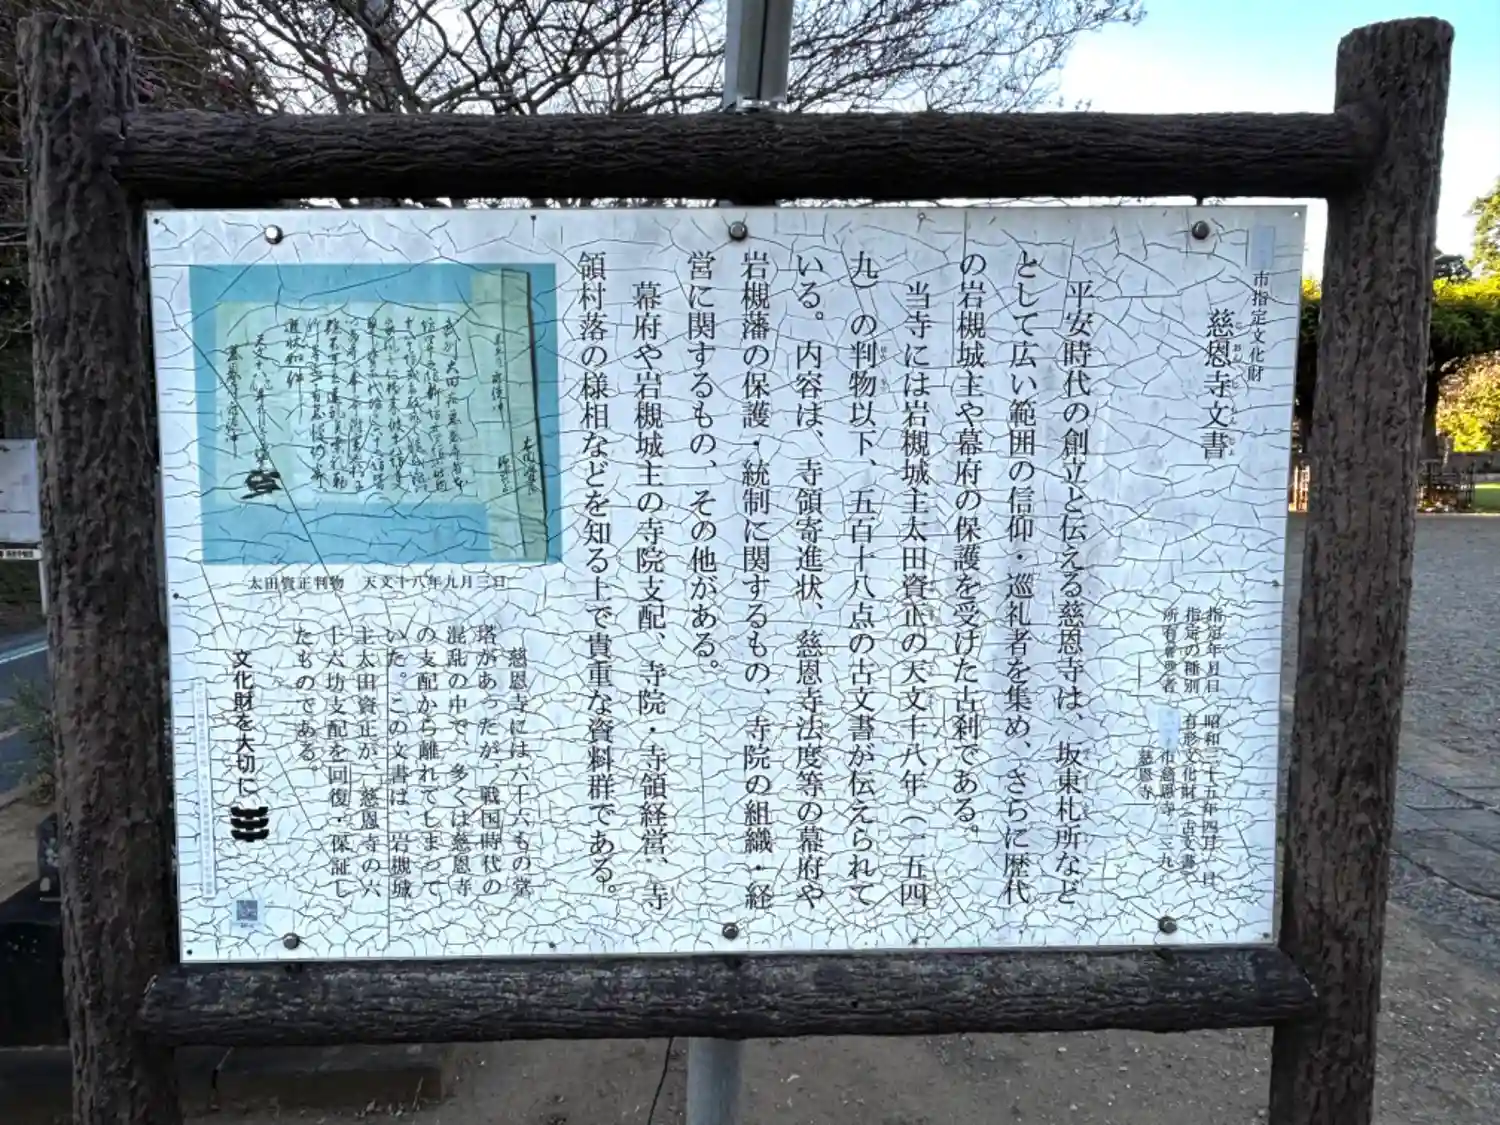 市指定文化財
慈恩寺文書
じおんじもんじょ
指定年月日 昭和三十五年四月一日
指定の種別 有形文化財（古文書）
所有者
市慈恩寺一三九
慈恩寺
平安時代の創立と伝える慈恩寺は、坂東札所など
として広い範囲の信仰・巡礼者を集め、さらに歴代
の岩槻城主や幕府の保護を受けた古刹である。
当寺には岩槻城主太田資正の天文十八年（一五四
九）の判物以下、五百十八点の古文書が伝えられて
いる。内容は、寺領寄進状、慈恩寺法度等の幕府や
岩槻藩の保護・統制に関するもの、寺院の組織・経
営に関するもの、その他がある。
幕府や岩槻城主の寺院支配、寺院・寺領経営、寺
領村落の様相などを知る上で貴重な資料群である。
太田資正判物 天文十八年九月三日
慈恩寺には六十六もの堂
塔があったが、戦国時代の
混乱の中で、多くは慈恩寺
の支配から離れてしまって
いた。この文書は、岩槻城
主太田資正が、慈恩寺の六
十六坊支配を回復・保証し
たものである。
文化財を大切に